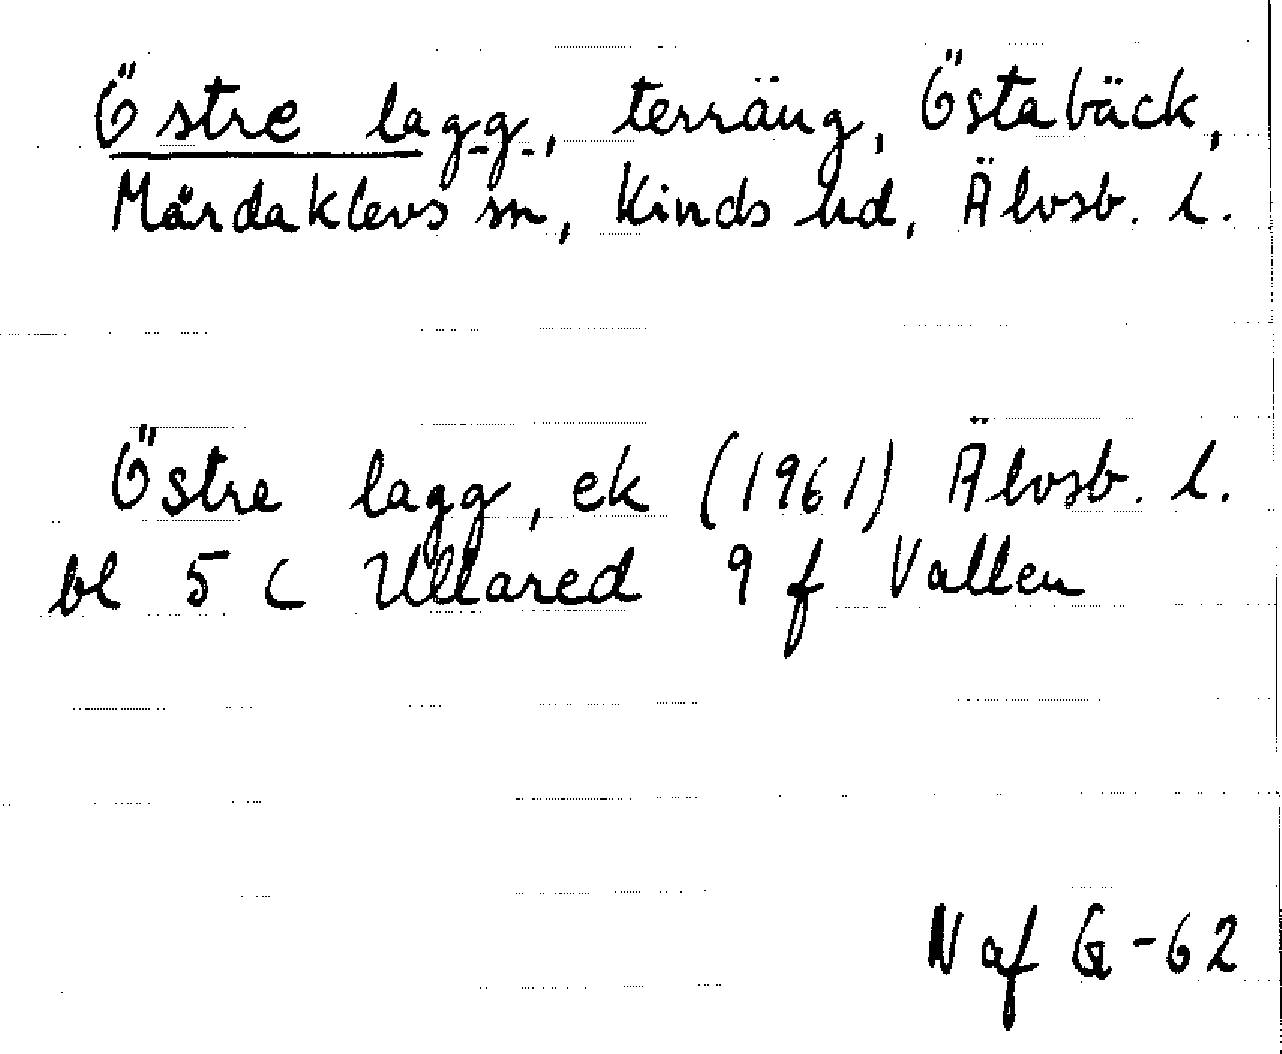 Östre lagg, terräng, Östabäck,
Mårdaklevs sn, Kinds hd, Älvsb. l.
Östre lagg, ek (1961) Älvsb. l.
bl 5 C Ullared 9 f Vallen
N af G -62